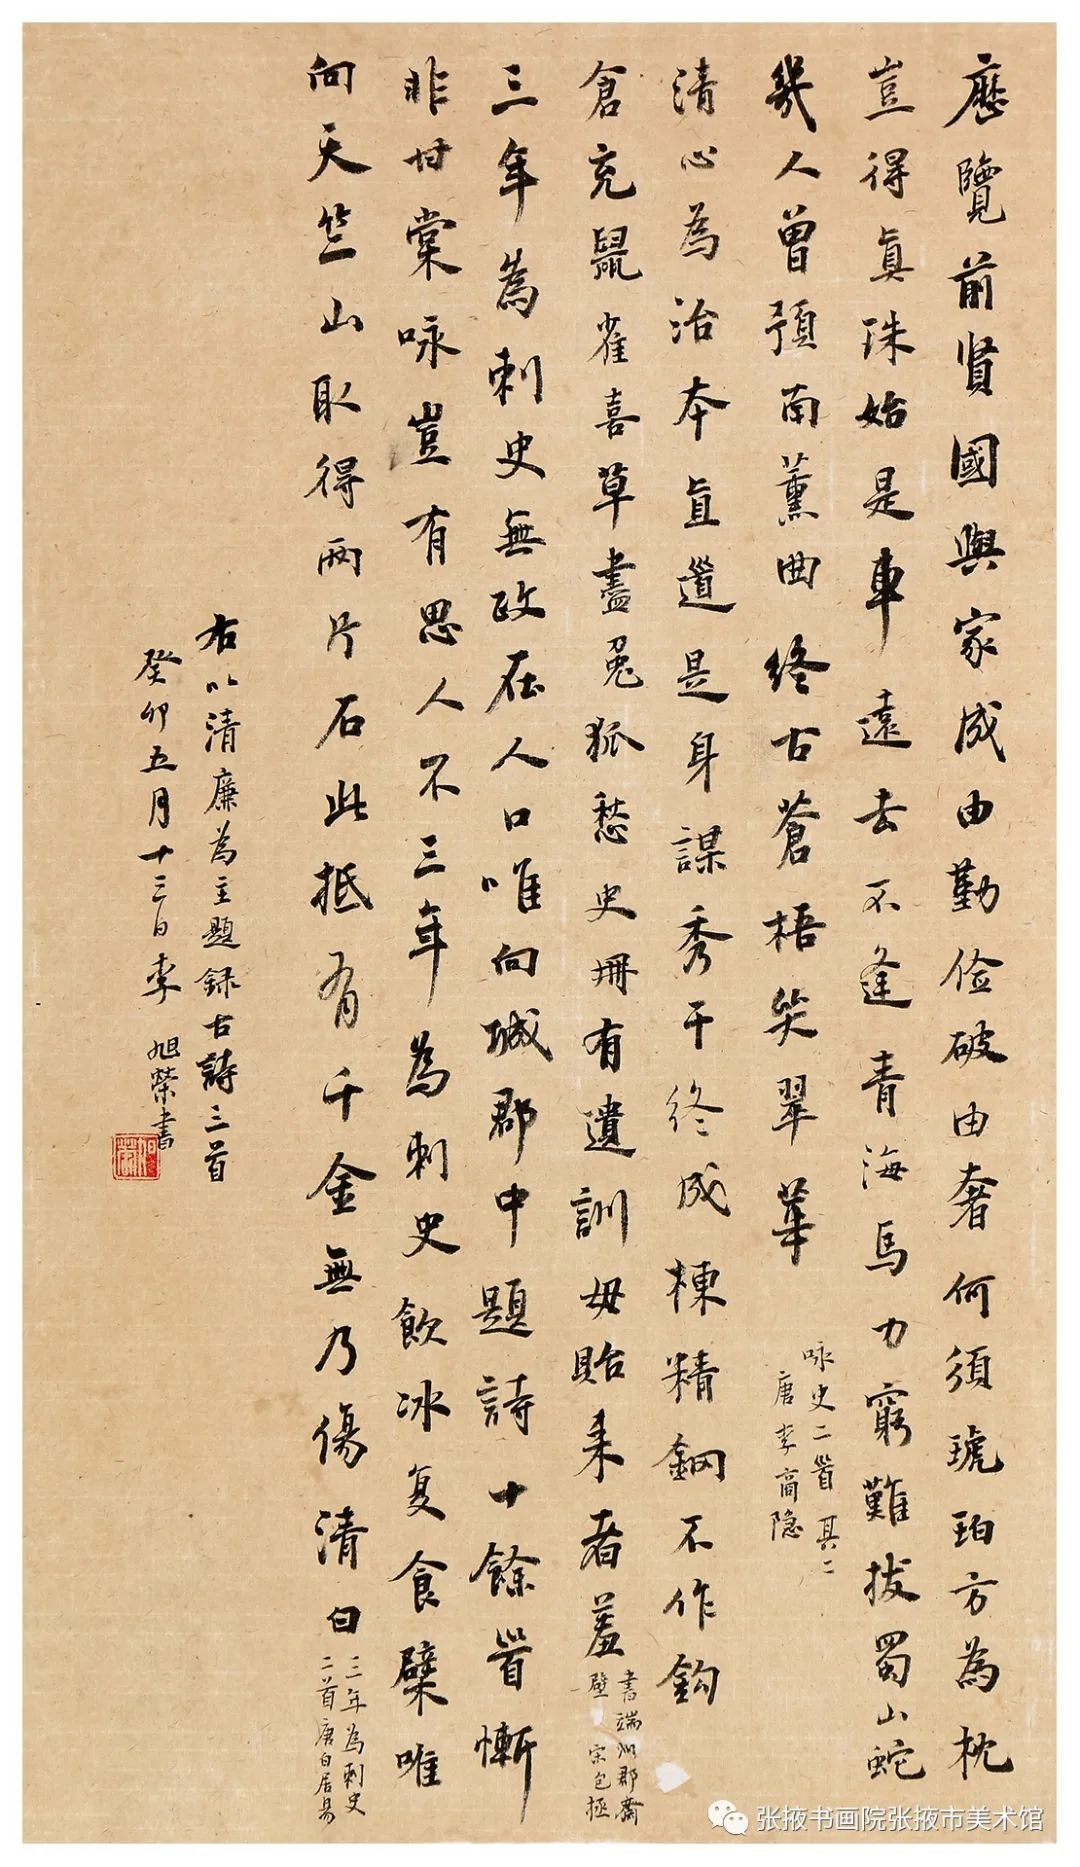 歷覽前賢國與家成由勤俭破由奢何須琥珀方為枕
豈得真珠始是車遠去不逢青海馬力窮難拔蜀山蛇
幾人曾預南薰曲終古蒼梧哭翠華
咏史二首其二
唐李商隐
清心為治本直道是身謀秀干終成棟精鋼不作鈎
倉充鼠雀喜草盡兔狐愁史冊有遺訓毋貽来者羞
書端州郡齋
壁 宋包拯
三年為刺史無政在人口唯向城郡中題詩十餘首慚
非甘棠咏豈有思人不三年為刺史飲冰复食檗唯
向天竺山取得兩片石此抵有千金無乃傷清白
三年為刺史
二首唐白居易
右以清廉為主題録古詩三首
癸卯五月十三日李旭榮書
旭榮
张掖书画院张掖市美术馆